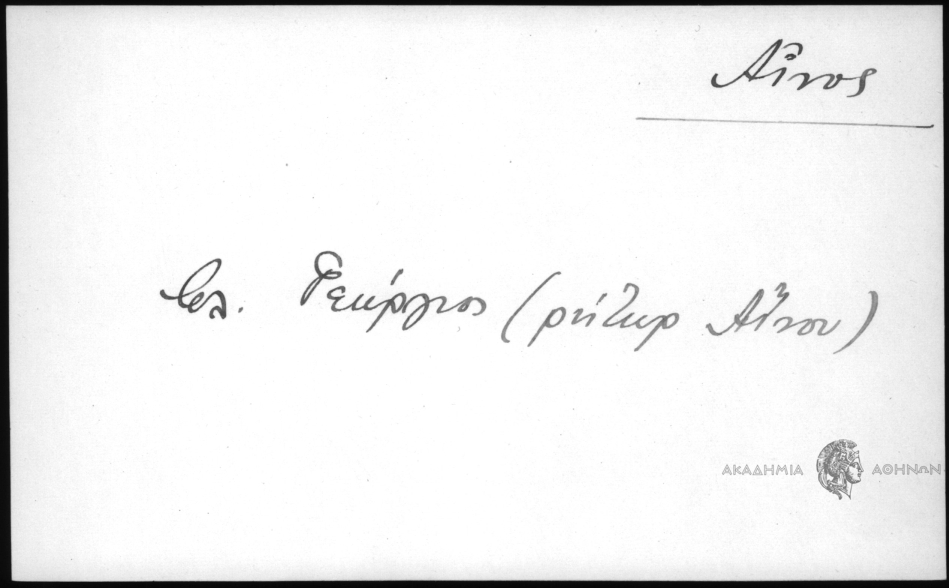 Αἶνος
βλ. Γεώργιος (ρήτωρ Αἴνου)
ΑΚΑΔΗΜΙΑ ΑΘΗΝΩΝ